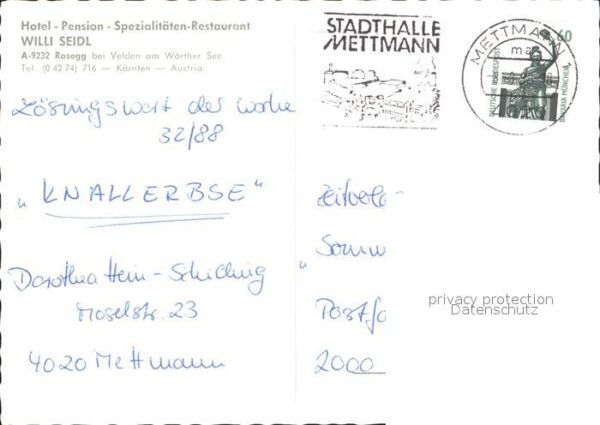 Hotel - Pension - Spezialitäten-Restaurant
WILLI SEIDL
A-9232 Rosegg bei Velden am Wörther See
Tel. (0 42 74) 716 — Kärnten — Austria
STADTHALLE
METTMANN
METTMANN
ma
60
DEUTSCHE BUNDESPOST
BAVARIA MÜNCHEN
Lösungswort der Woche
32/88
"KNALLERBSE"
Dorothea Hein-Schilling
Moselstr. 23
4020 Mettmann
"Somm
Postfa
2000
privacy protection
Datenschutz